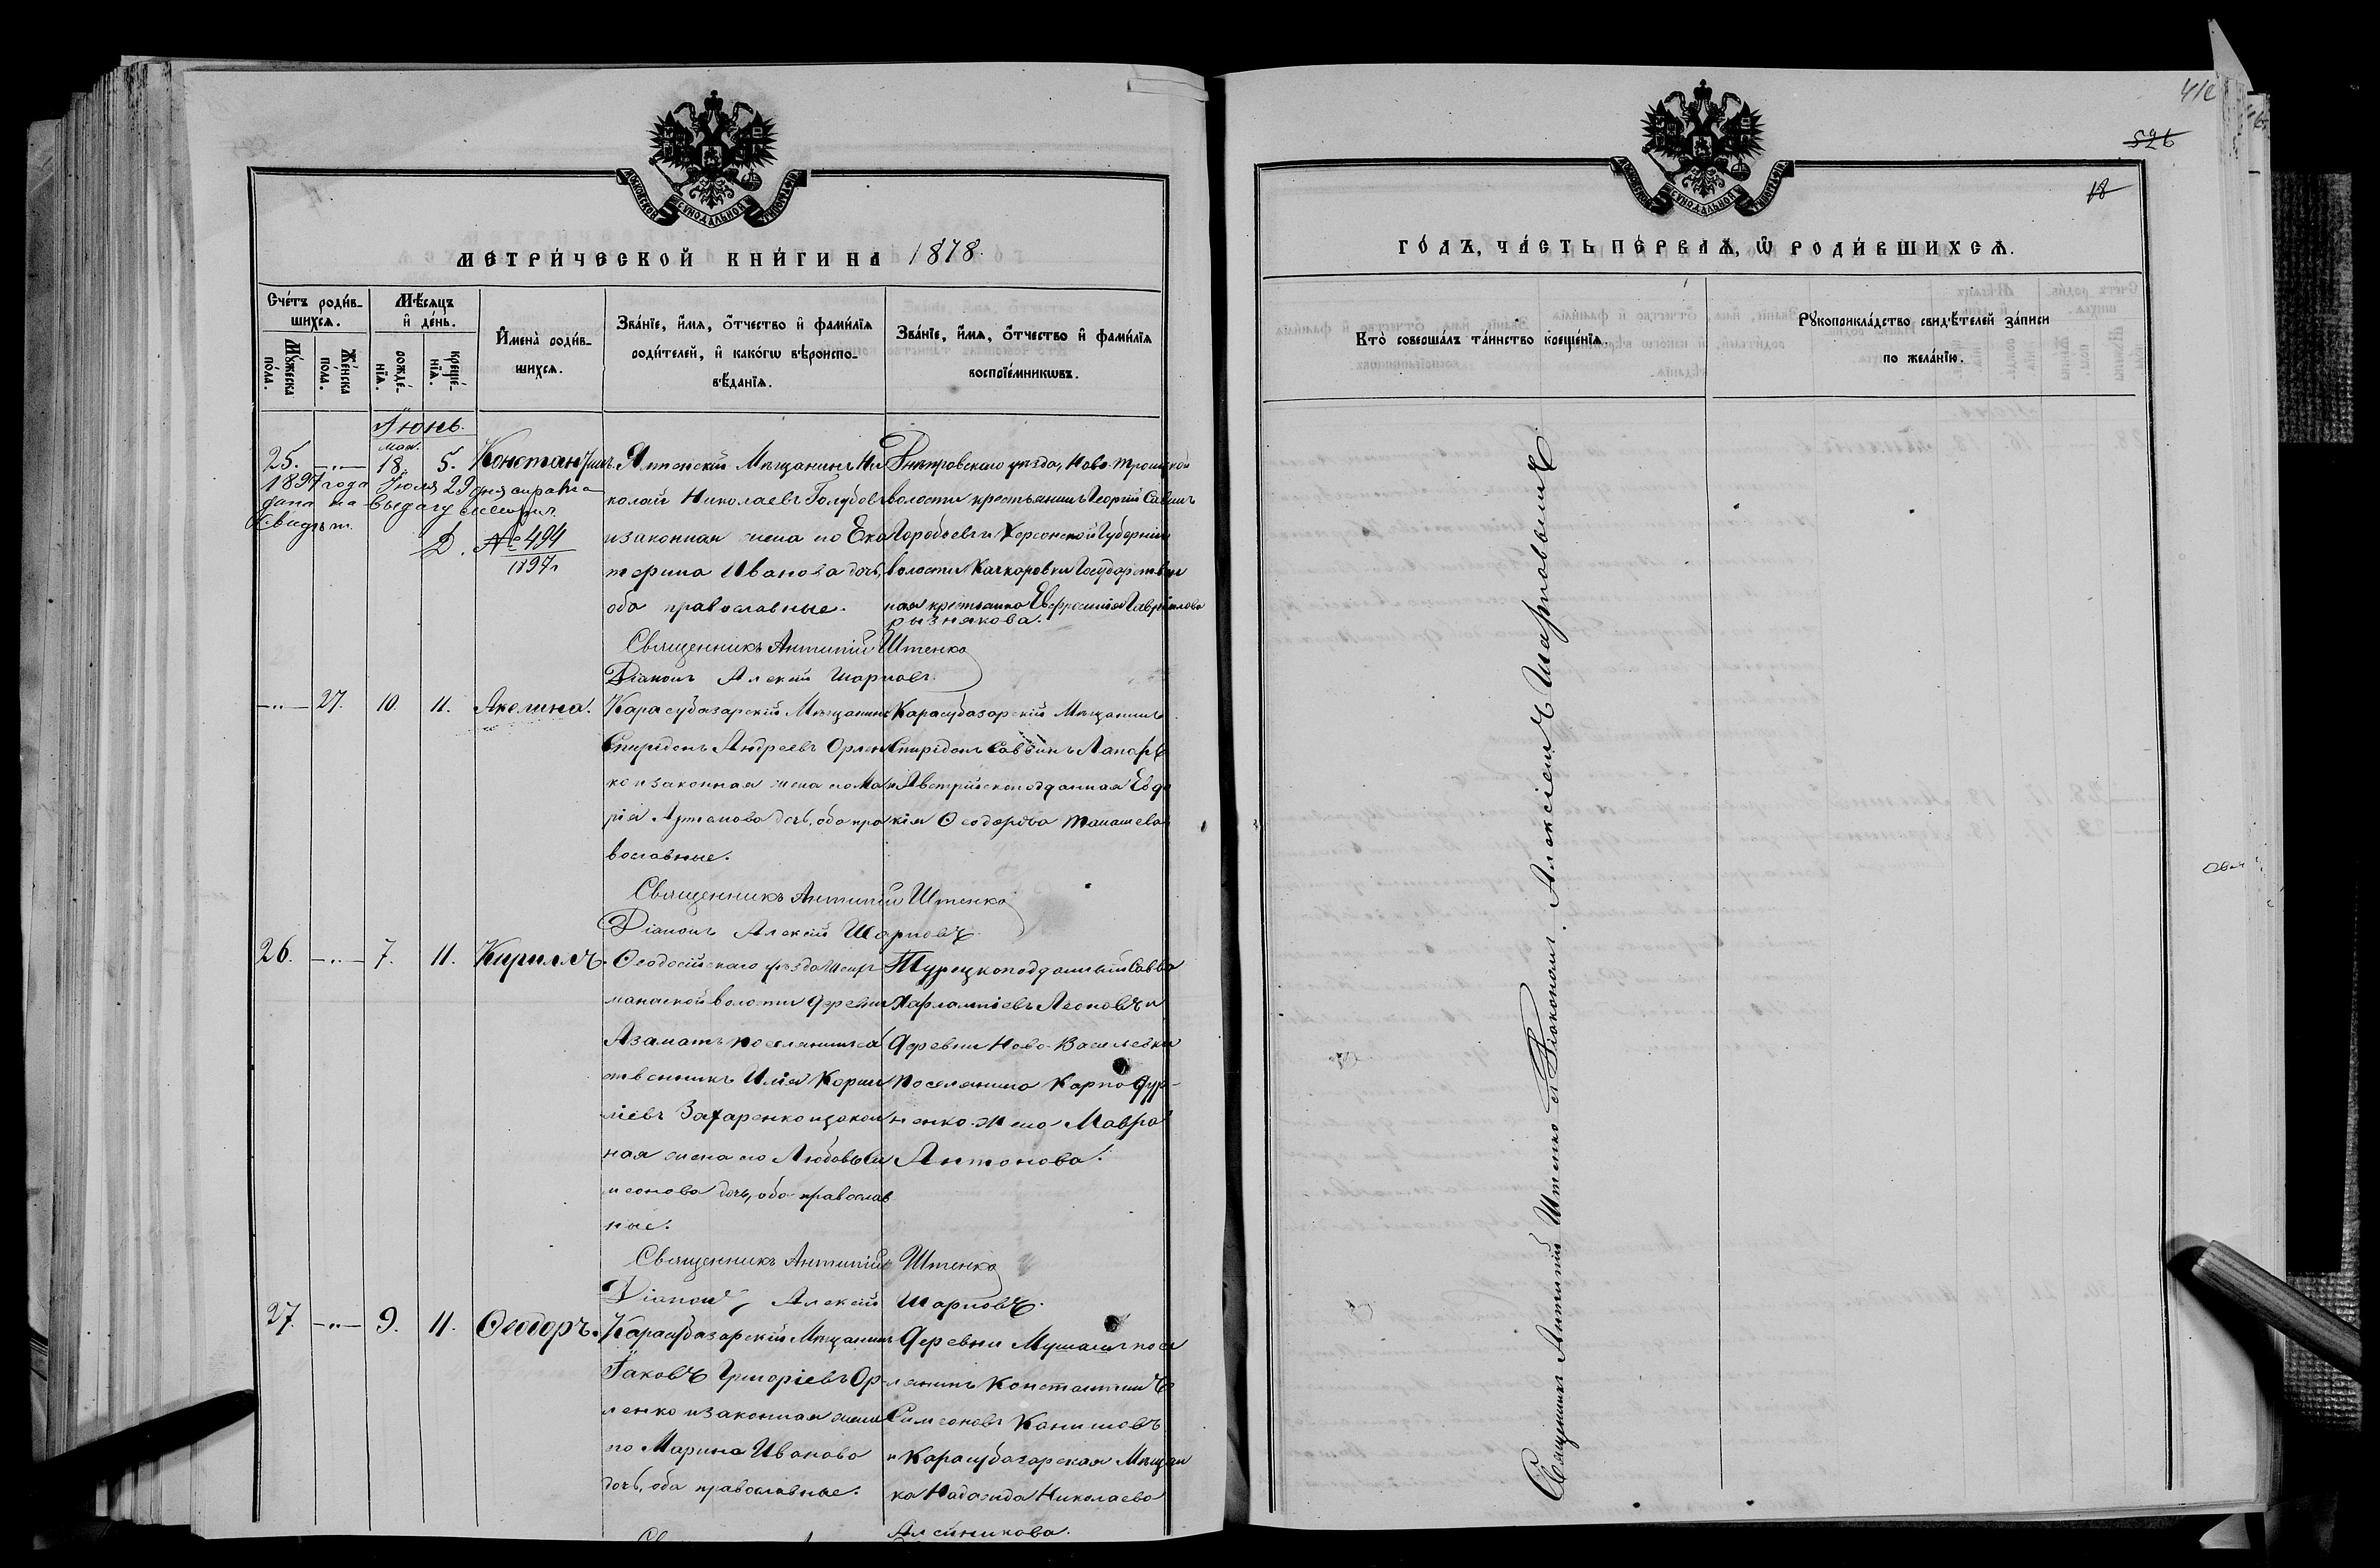 МОСКОВСКОЙ СѴНОДАЛЬНОЙ ТИПОГРАФІИ
МЕТРИ́ЧЕСКОЙ КНИ́ГИ НА 1878.
Сче́тъ роди́в-
шихсѧ.
Мѣ́сѧцъ
и҆ де́нь.
Мꙋ́жеска
по́ла.
Же́нска
по́ла.
рожде́-
нїѧ.
креще́-
нїѧ.
И҆мена̀ роди́в-
шихсѧ.
Зва́нїе, и҆́мѧ, ѻ҆́тчество и҆ фами́лїѧ
роди́телей, и҆ како́гѡ вѣроиспо-
вѣ́данїѧ.
Зва́нїе, и҆́мѧ, ѻ҆́тчество и҆ фами́лїѧ
воспрїе́мникѡвъ.
Іюнь.
мая.
25. —„— 18. 5. Константинъ.
1897 года Іюля 29 дня справка
дана на выдачу
Свидѣт.
№ 494
1897
Ялтенскій Мѣщанинъ Ни
колай Николаевъ Голубовъ
и законная жена его Ека
терина Иванова дочь,
оба православные.
Днѣпровскаго уѣзда, Ново-Троицкой
волости крестьянинъ Георгій Саввинъ
Горобьевъ и Херсонской Губерніи
волости Качкаровки Государствен
ная крестьянка Евфросинія Гавріилова
рызнякова.
Священникъ Антипій Штенко
Діаконъ Алексій Шарповъ.
—„— 27. 10. 11. Акелина.
Карасубазарскій Мѣщанинъ
Спиридонъ Андреевъ Орлен
ко и законная жена его Ма
рія Артемова дочь, оба пра
вославные.
Карасубазарскій Мѣщанинъ
Спиридонъ Саввинъ Лапарь
и Австрійскоподданная Евдо
кія Ѳеодорова Танашева
Священникъ Антипій Штенко
Діаконъ Алексій Шарповъ
26. —„— 7. 11. Кириллъ.
Ѳеодосійскаго уѣзда
волости деревни
Азаматъ поселянинъ со
ственникъ Илія Корни
ліевъ Захаренко и закон
ная жена его Любовь Си
меонова дочь, оба православ
ные.
Турецкоподданный Савва
Харлампіевъ Леоновъ и
деревни Ново-Васильевки
поселянина Карпа Дур-
ненко жена Мавра
Антонова.
Священникъ Антипій Штенко
Діаконъ, Алексій Шарповъ.
27. —„— 9. 11. Ѳеодоръ.
Карасубазарскій Мѣщанинъ
Іаковъ Григоріевъ Ор-
ленко и законная жена
его Марина Иванова
дочь, оба православные.
Деревни Мушашъ посе
лянинъ Константинъ
Симеоновъ Канишовъ
и Карасубазарская Мѣщан
ка Надежда Николаева
Алейникова.
ГО́ДЪ, ЧА́СТЬ ПЕ́РВАѦ, Ѡ҆ РОДИ́ВШИХСѦ.
526
18
Кто̀ соверша́лъ та́инство креще́нїѧ.
Рꙋкоприкла́дство свидѣ́телей за́писи
по жела́нїю.
Священникъ Антипій Штенко съ Діакономъ Алексіемъ Шарповымъ.